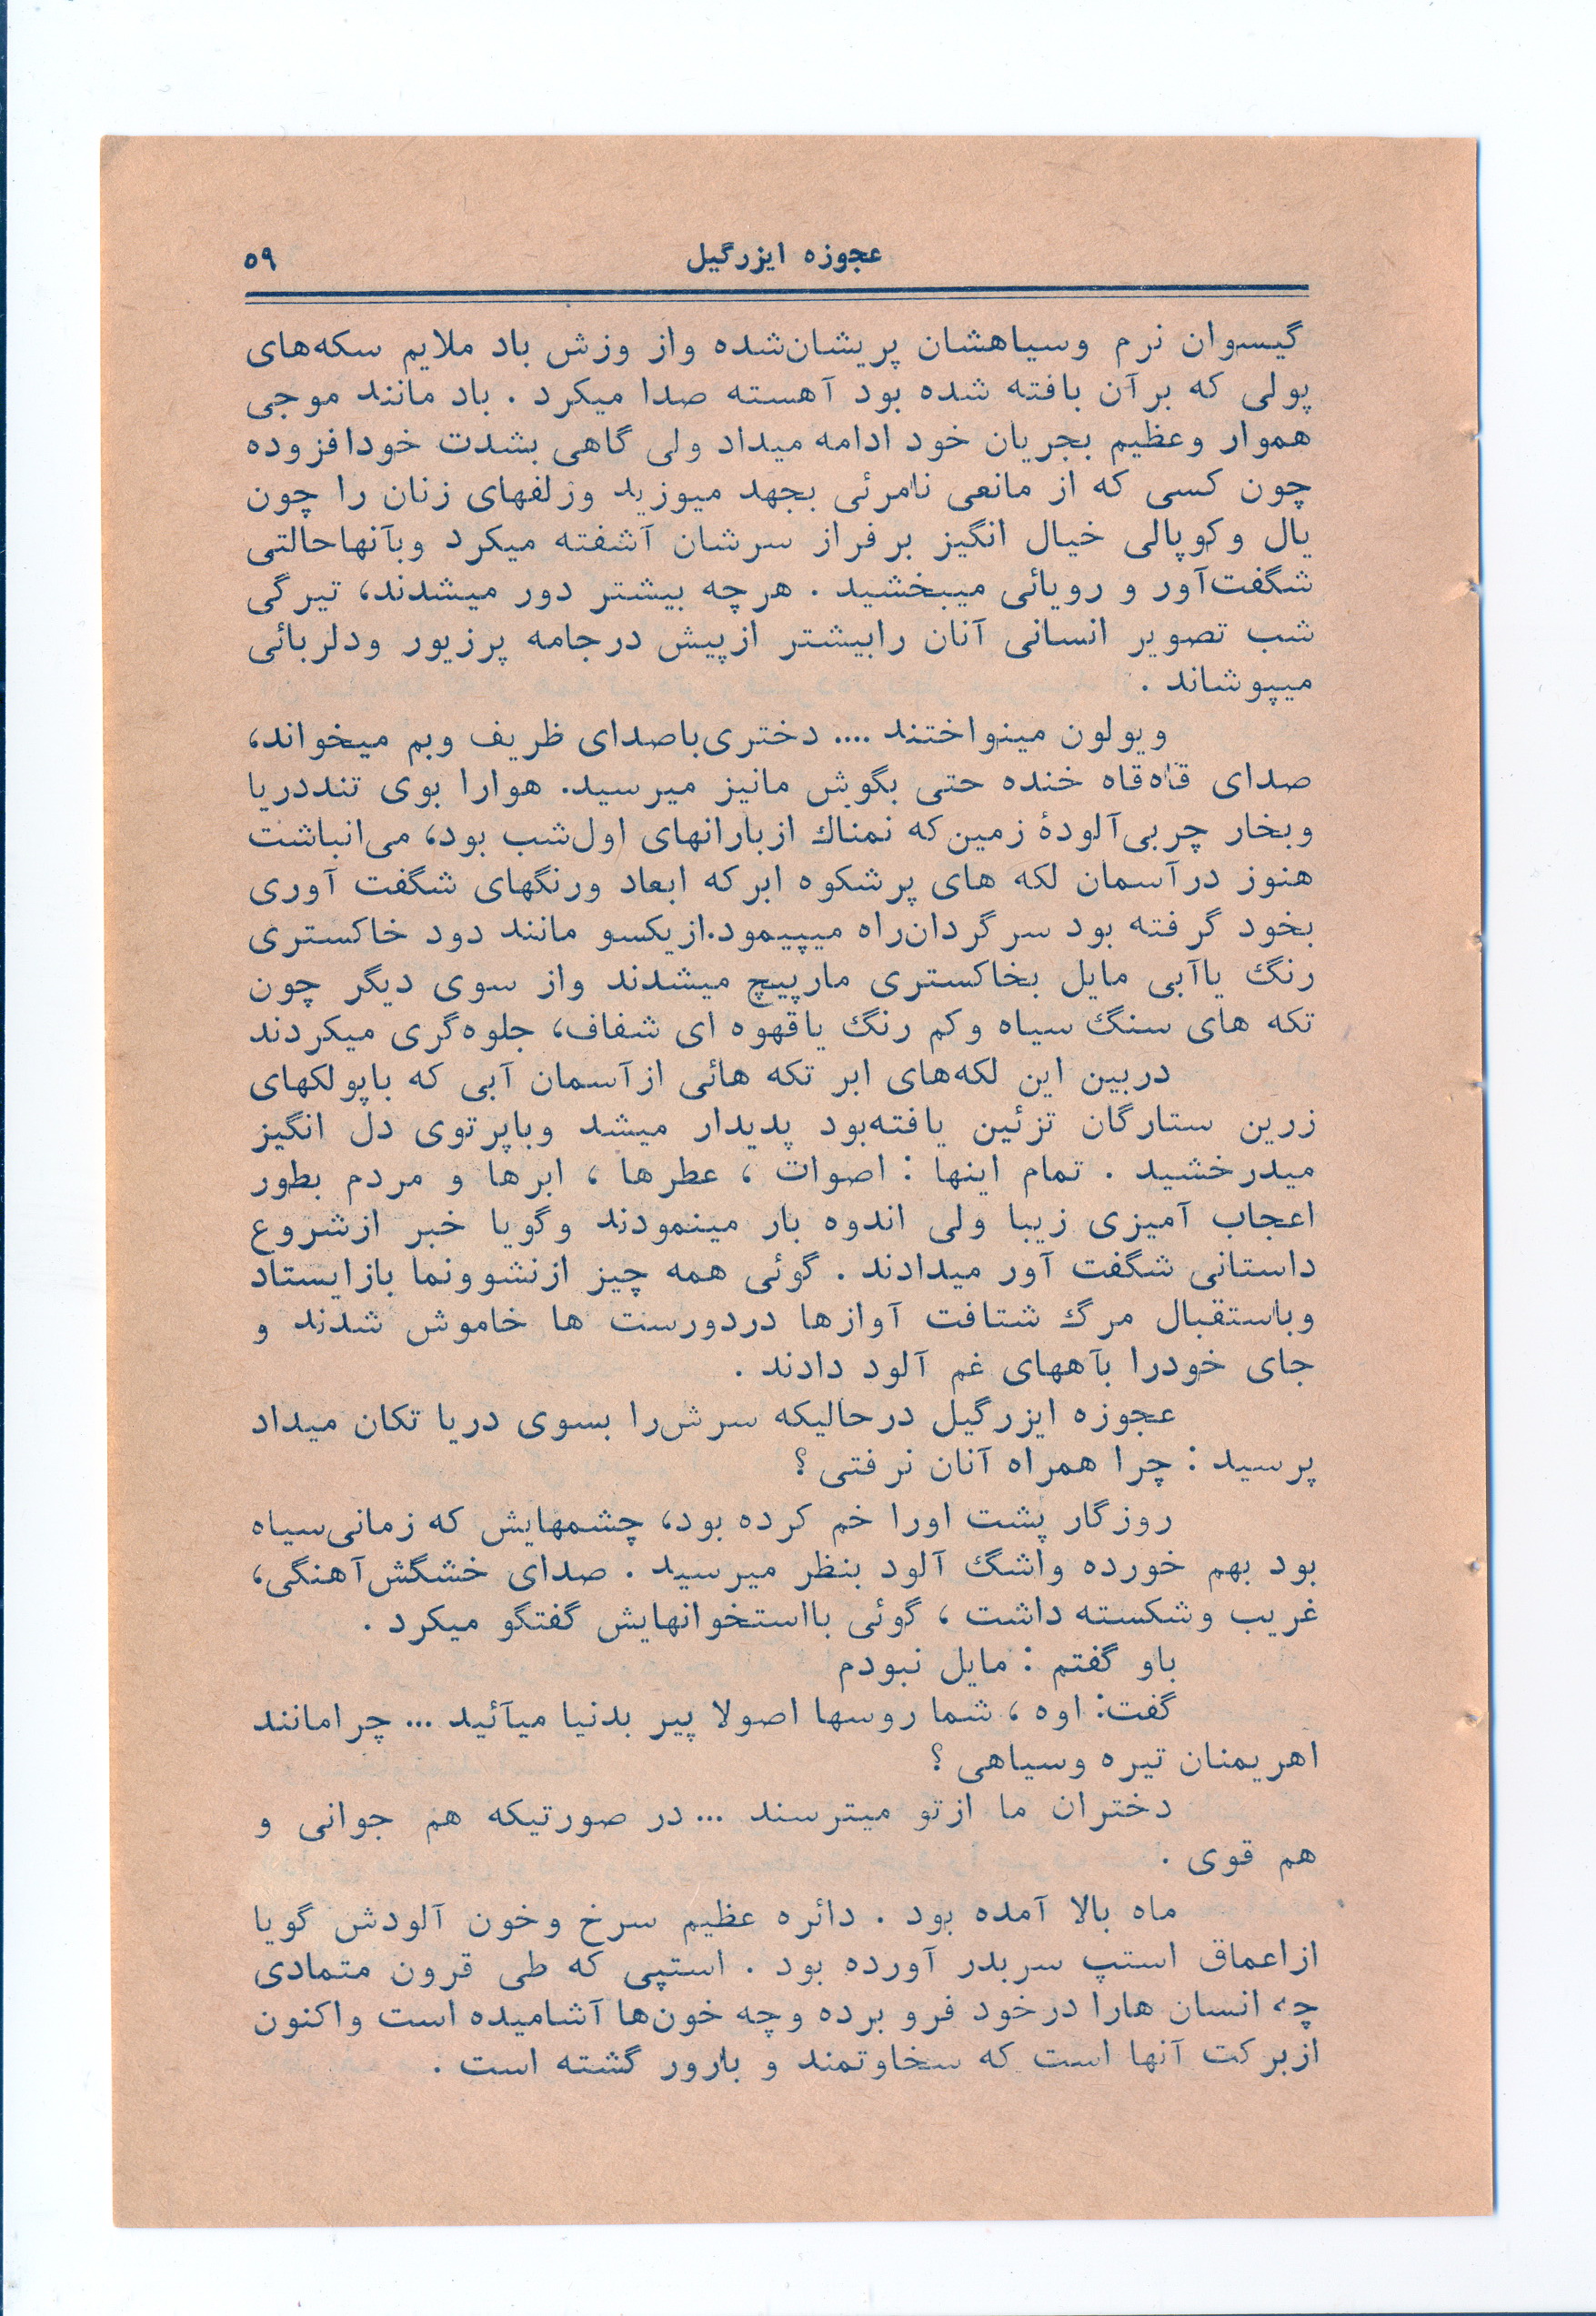 عجوزه ایزرگیل
۵۹
گیسوان نرم وسیاهشان پریشان‌شده واز وزش باد ملایم سکه‌های
پولی که برآن بافته شده بود آهسته صدا میکرد . باد مانند موجی
هموار وعظیم بجریان خود ادامه میداد ولی گاهی بشدت خودافزوده
چون کسی که از مانعی نامرئی بجهد میوزید وزلفهای زنان را چون
یال وکوپالی خیال انگیز برفراز سرشان آشفته میکرد وبآنهاحالتی
شگفت‌آور و رویائی میبخشید . هرچه بیشتر دور میشدند، تیرگی
شب تصویر انسانی آنان رابیشتر ازپیش درجامه پرزیور ودلربائی
میپوشاند .
ویولون مینواختند .... دختری‌باصدای ظریف وبم میخواند،
صدای قاه‌قاه خنده حتی بگوش مانیز میرسید. هوارا بوی تنددریا
وبخار چربی‌آلودهٔ زمین‌که نمناك ازبارانهای اول‌شب بود، می‌انباشت
هنوز درآسمان لکه های پرشکوه ابرکه ابعاد ورنگهای شگفت آوری
بخود گرفته بود سرگردان‌راه میپیمود.ازیکسو مانند دود خاکستری
رنگ یاآبی مایل بخاکستری مارپیچ میشدند واز سوی دیگر چون
تکه های سنگ سیاه وکم رنگ یاقهوه ای شفاف، جلوه‌گری میکردند
دربین این لکه‌های ابر تکه هائی ازآسمان آبی که باپولکهای
زرین ستارگان تزئین یافته‌بود پدیدار میشد وباپرتوی دل انگیز
میدرخشید . تمام اینها : اصوات ، عطرها ، ابرها و مردم بطور
اعجاب آمیزی زیبا ولی اندوه بار مینمودند وگویا خبر ازشروع
داستانی شگفت آور میدادند . گوئی همه چیز ازنشوونما بازایستاد
وباستقبال مرگ شتافت آوازها دردورست ها خاموش شدند و
جای خودرا بآههای غم آلود دادند .
عجوزه ایزرگیل درحالیکه سرش‌را بسوی دریا تکان میداد
پرسید : چرا همراه آنان نرفتی ؟
روزگار پشت اورا خم کرده بود، چشمهایش که زمانی‌سیاه
بود بهم خورده واشگ آلود بنظر میرسید . صدای خشگش‌آهنگی،
غریب وشکسته داشت ، گوئی بااستخوانهایش گفتگو میکرد .
باو گفتم : مایل نبودم
گفت: اوه ، شما روسها اصولا پیر بدنیا میآئید ... چرامانند
اهریمنان تیره وسیاهی ؟
دختران ما ازتو میترسند ... در صورتیکه هم جوانی و
هم قوی .
ماه بالا آمده بود . دائره عظیم سرخ وخون آلودش گویا
ازاعماق استپ سربدر آورده بود . استپی که طی قرون متمادی
چه انسان هارا درخود فرو برده وچه خون‌ها آشامیده است واکنون
ازبرکت آنها است که سخاوتمند و بارور گشته است .